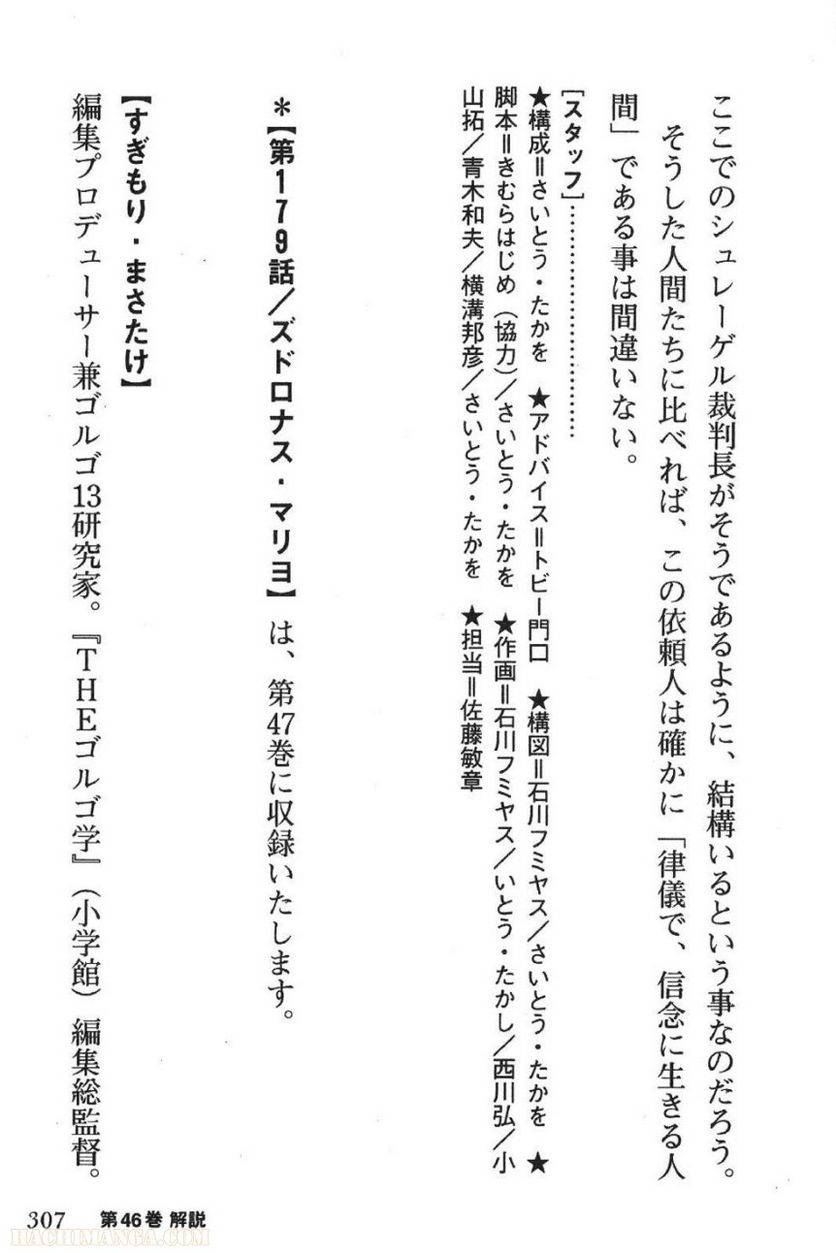 ここでのシュレーゲル裁判長がそうであるように、結構いるという事なのだろう。
そうした人間たちに比べれば、この依頼人は確かに「律儀で、信念に生きる人
間」である事は間違いない。
[スタッフ]……………………
★構成＝さいとう・たかを　★アドバイス＝トビー門口　★構図＝石川フミヤス／さいとう・たかを　★
脚本＝きむらはじめ（協力）／さいとう・たかを　★作画＝石川フミヤス／いとう・たかし／西川弘／小
山拓／青木和夫／横溝邦彦／さいとう・たかを　★担当＝佐藤敏章
＊【第179話／ズドロナス・マリヨ】は、第47巻に収録いたします。
【すぎもり・まさたけ】
編集プロデューサー兼ゴルゴ13研究家。『THEゴルゴ学』（小学館）編集総監督。
307　第46巻 解説
HACHIMANGA.COM